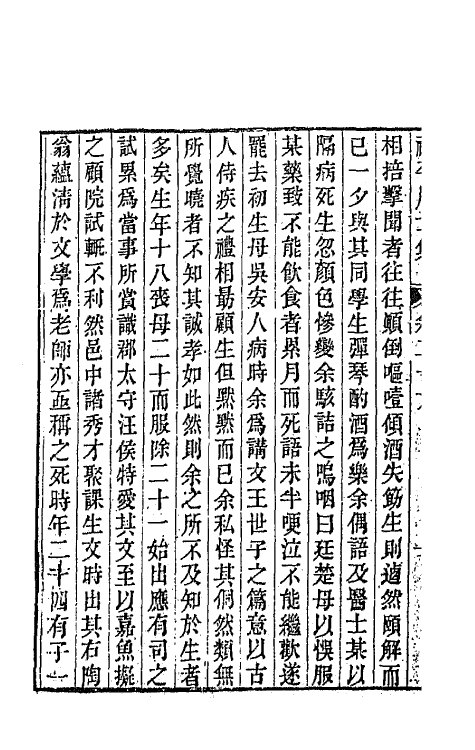 相掊擊聞者往往顚倒嘔噎傾酒失筯生則逌然頤解而
已一夕與其同學生彈琴酌酒爲樂余偶語及醫士某以
隔病死生忽顔色慘變余駭詰之嗚咽曰廷楚母以悞服
某藥致不能飲食者累月而死語未半哽泣不能繼歡遂
罷去初生母吳安人病時余爲講文王世子之篇意以古
人侍疾之禮相勗顧生但默默而已余私怪其侗然類無
所覺曉者不知其誠孝如此然則余之所不及知於生者
多矣生年十八喪母二十而服除二十一始出應有司之
試累爲當事所賞識郡太守汪侯特愛其文至以嘉魚擬
之顧院試輒不利然邑中諸秀才聚課生文時出其右陶
翁蘊清於文學爲老師亦亟稱之死時年二十四有子一